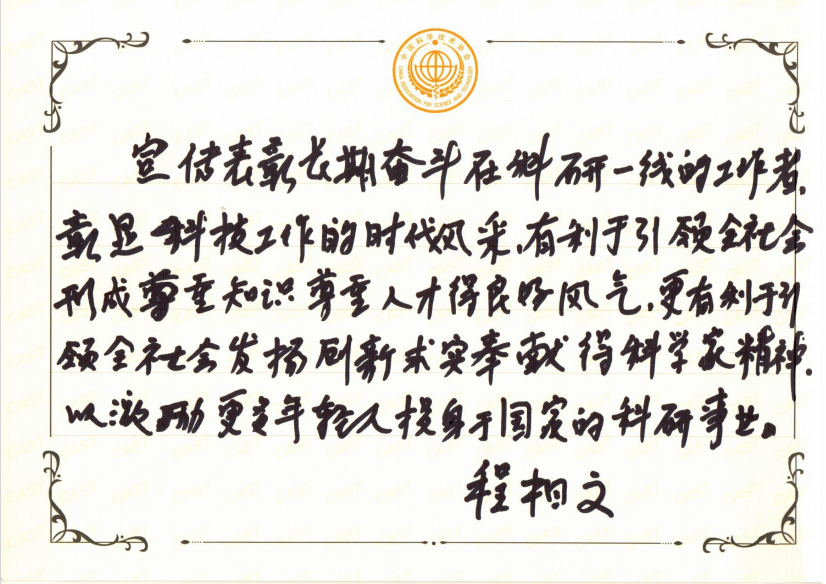 中国科学技术协会
CHINA ASSOCIATION FOR SCIENCE AND TECHNOLOGY
宣传表彰长期奋斗在科研一线的工作者,
彰显科技工作的时代风采,有利于引领全社会
形成尊重知识尊重人才得良好风气,更有利于引
领全社会发扬创新求实奉献得科学家精神,
以激励更多年轻人投身于国家的科研事业。
程相文